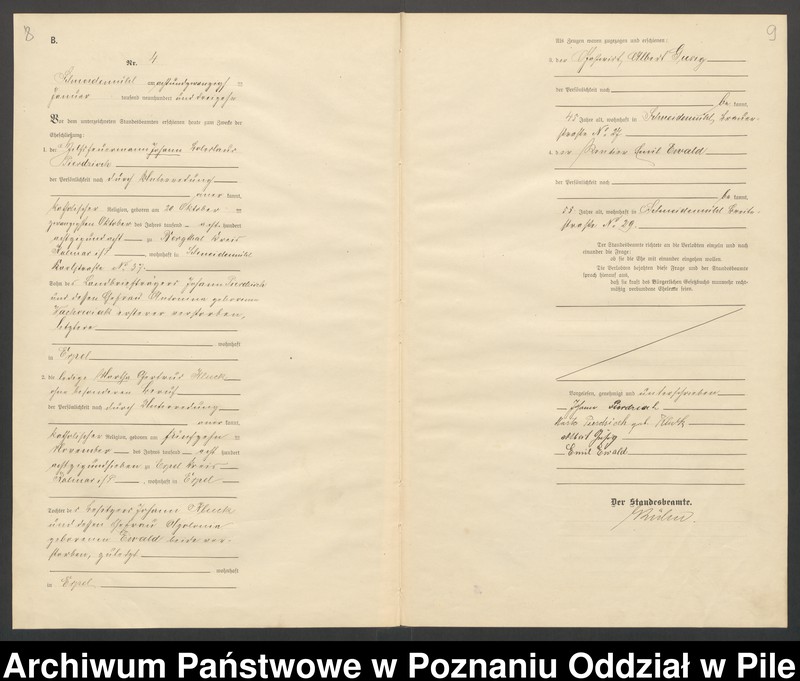 8
B.
Nr. 4
Schneidemühl
Januar tausend neunhundert und dreizehn
Vor dem unterzeichneten Standesbeamten erschienen heute zum Zwecke der
Eheschließung:
1. der Johann
der Persönlichkeit nach durch Unterredung
kannt,
katholischer Religion, geboren am 20. Oktober
zwanzigsten Oktober des Jahres tausend acht hundert
zu Kreis
Kolmar i/P, wohnhaft in Schneidemühl
Karlstraße No 37.
Sohn des Landbriefträgers Johann
und dessen Ehefrau Antonina geborenen
ersterer verstorben,
letztere
wohnhaft
in Erpel
2. die ledige Martha Gertrud Kluck
ohne besonderen Beruf
der Persönlichkeit nach durch Unterredung
kannt,
katholischer Religion, geboren am fünfzehn
November des Jahres tausend acht hundert
zu Erpel Kreis
Kolmar i/P, wohnhaft in Erpel
Tochter des Besitzers Johann Kluck
und dessen Ehefrau Apolonia
geborenen Ewald beide ver-
storben, zuletzt
wohnhaft
in Erpel
9
Als Zeugen waren zugezogen und erschienen:
3. der Albert
der Persönlichkeit nach
be kannt,
45 Jahre alt, wohnhaft in Schneidemühl,
straße No 27
4. der Rentier Emil Ewald
der Persönlichkeit nach
be kannt,
55 Jahre alt, wohnhaft in Schneidemühl
straße No 29.
Der Standesbeamte richtete an die Verlobten einzeln und nach
einander die Frage:
ob sie die Ehe mit einander eingehen wollen.
Die Verlobten bejahten diese Frage und der Standesbeamte
sprach hierauf aus,
daß sie kraft des Bürgerlichen Gesetzbuchs nunmehr recht-
mäßig verbundene Eheleute seien.
Vorgelesen, genehmigt und unterschrieben
Johann
geb. Kluck
Albert
Emil Ewald
Der Standesbeamte.
Archiwum Państwowe w Poznaniu Oddział w Pile